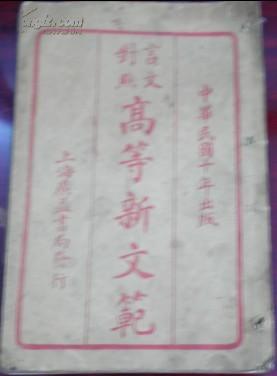 中華民國十年出版
言文
對照
高等新文範
上海廣益書局發行